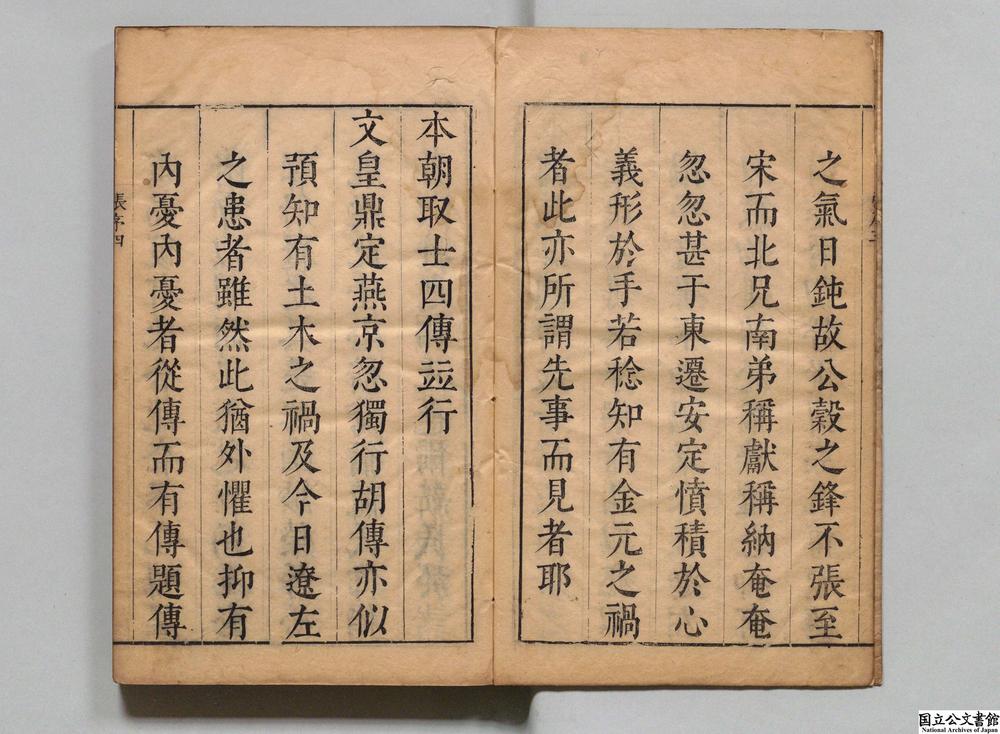 之氣日鈍故公穀之鋒不張至
宋而北兄南弟稱獻稱納奄奄
忽忽甚于東遷安定憤積於心
義形於手若稔知有金元之禍
者此亦所謂先事而見者耶
本朝取士四傳竝行
文皇鼎定燕京忽獨行胡傳亦似
預知有土木之禍及今日遼左
之患者雖然此猶外懼也抑有
內憂內憂者從傳而有傳題傳
張序四
国立公文書館
National Archives of Japan